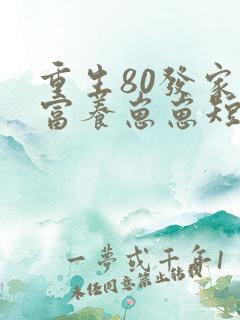 重生80發家
富養崽崽短
一夢或千年1
未经同意禁止转载